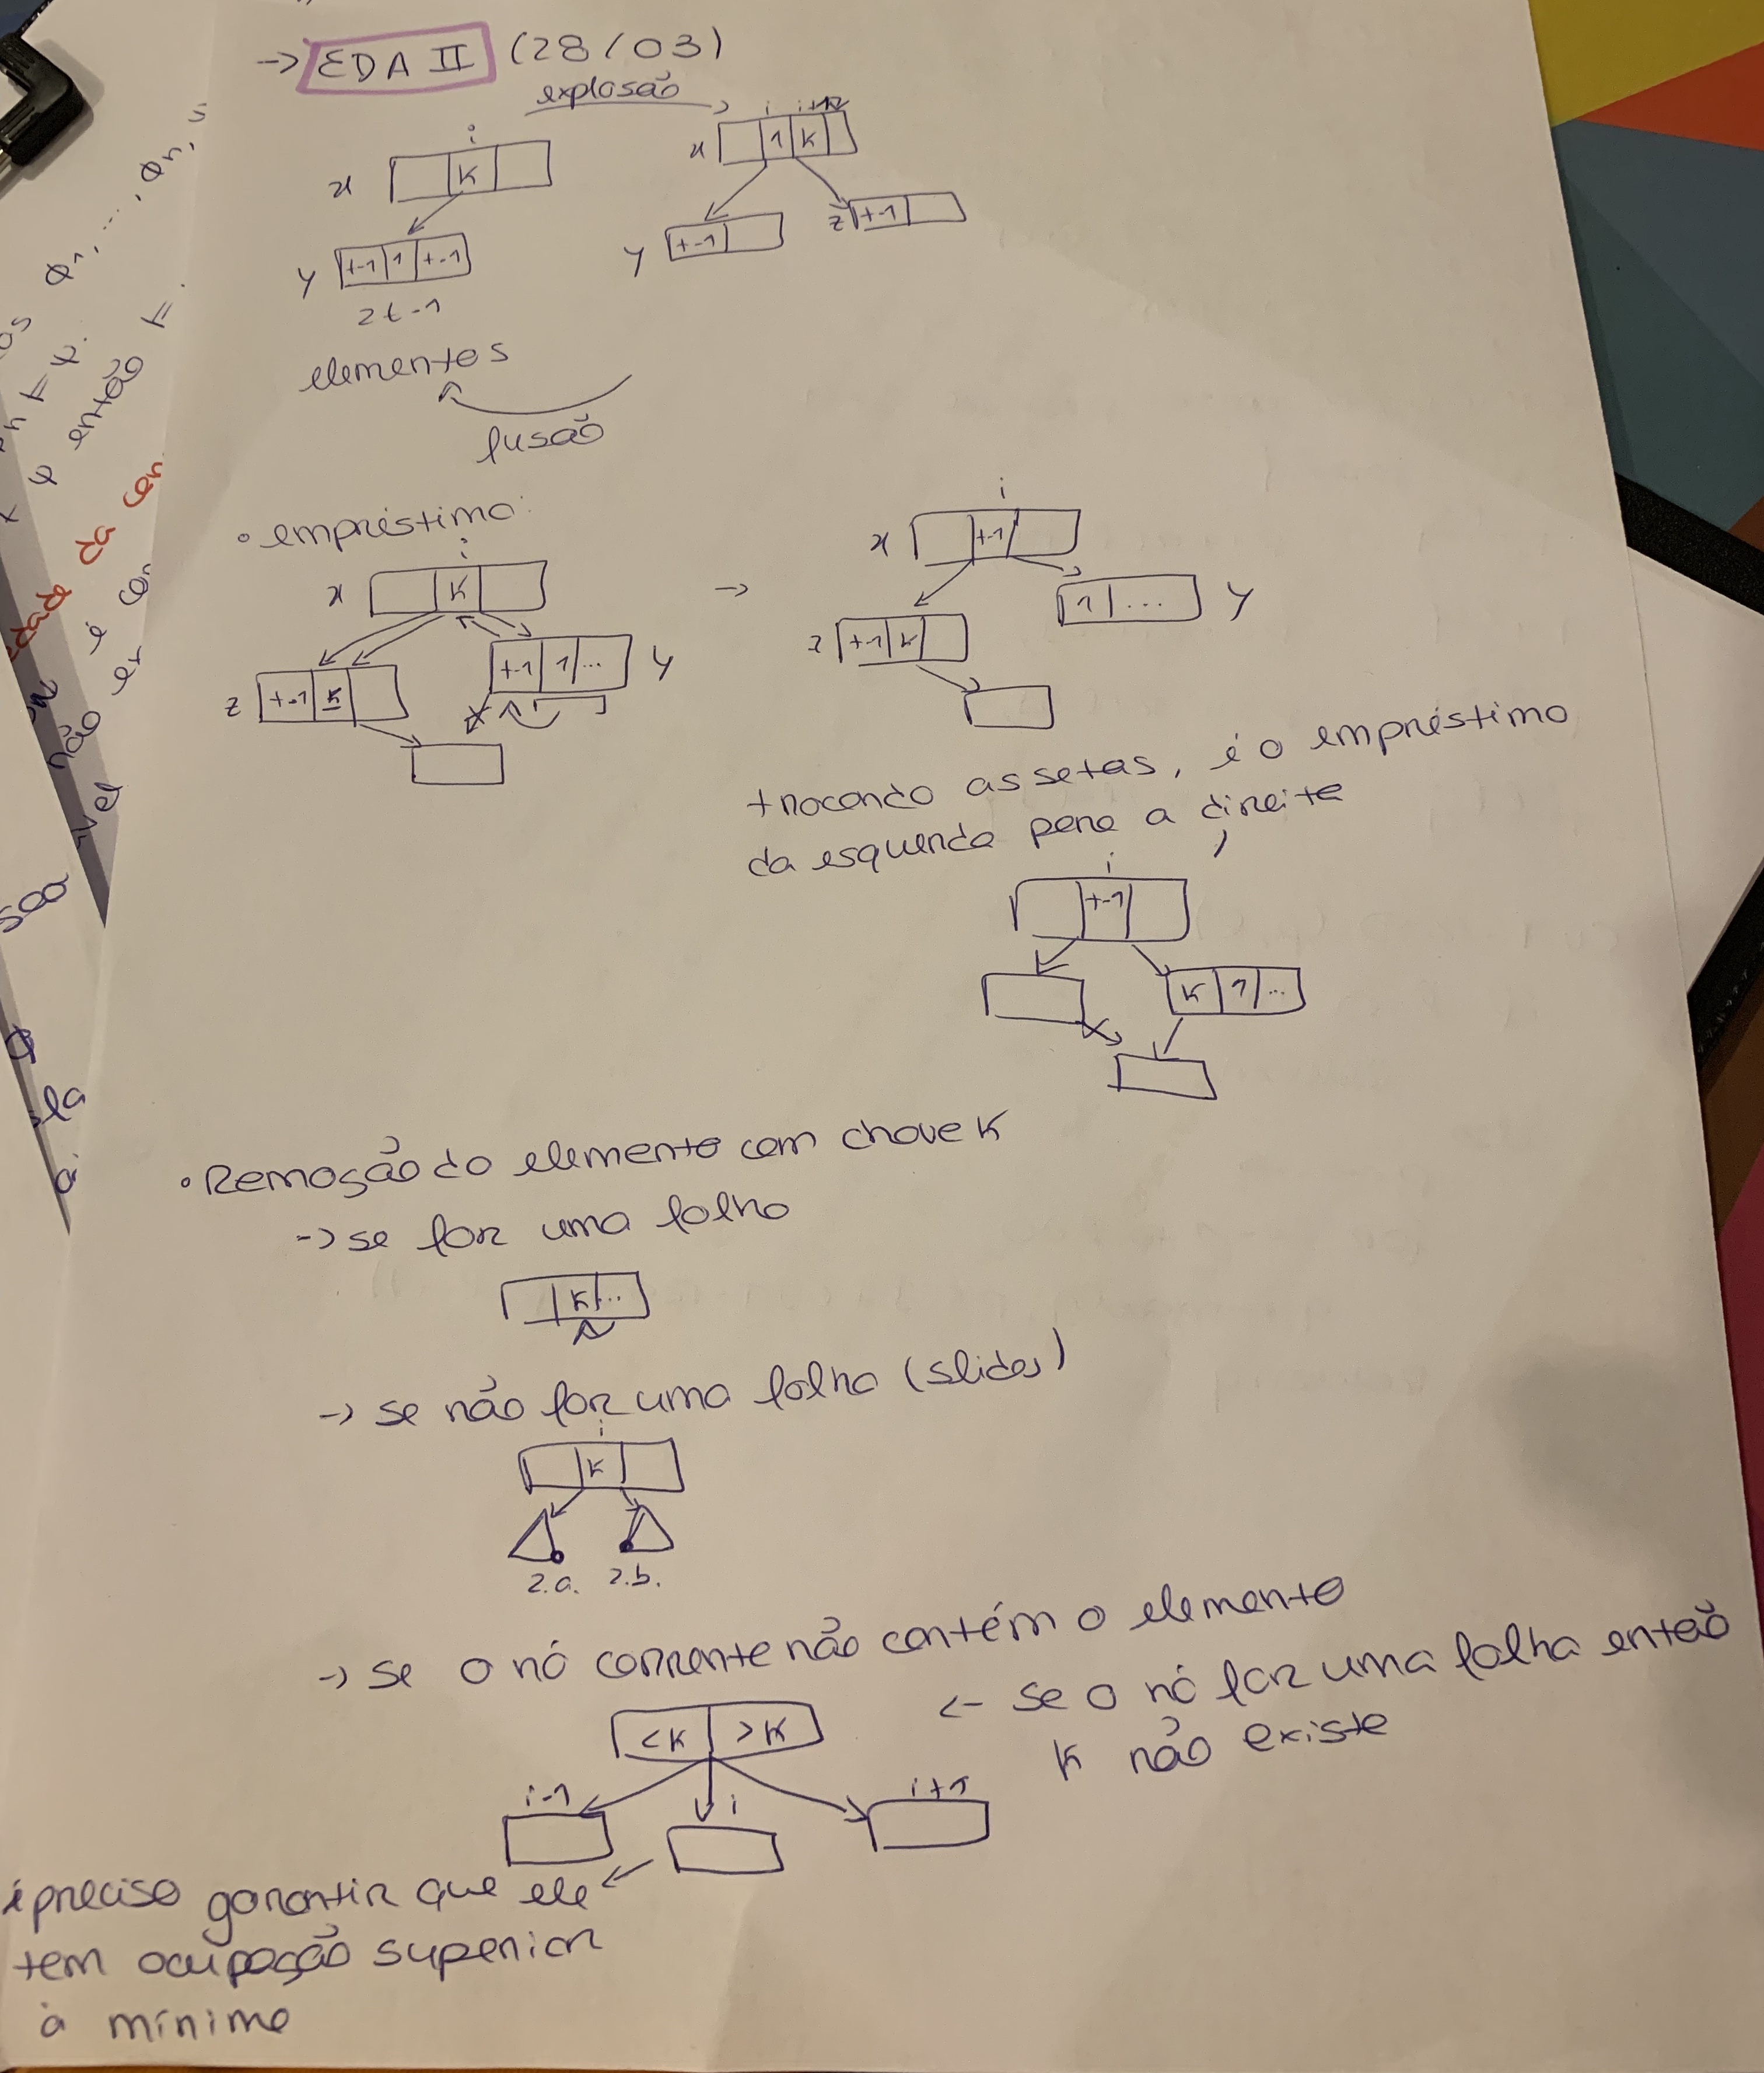 → EDA II (28/03)
explosão
i
i i+1
x K
x 1 K
y t-1 1 t-1
y t-1
z t-1
2t-1
elementos
fusão
• empréstimo:
i
x K
→
z t-1 K
t-1 1 ... y
i
x t-1
1 ... y
z t-1 K
trocando as setas, é o empréstimo
da esquerda para a direita
i
t-1
K 1 ...
• Remoção do elemento com chave K
→ se for uma folha
K ...
→ se não for uma folha (slides)
i
K
2.a. 2.b.
→ se o nó corrente não contém o elemento
← se o nó for uma folha então
K não existe
<K >K
i-1 i i+1
é preciso garantir que ele
tem ocupação superior
à mínima